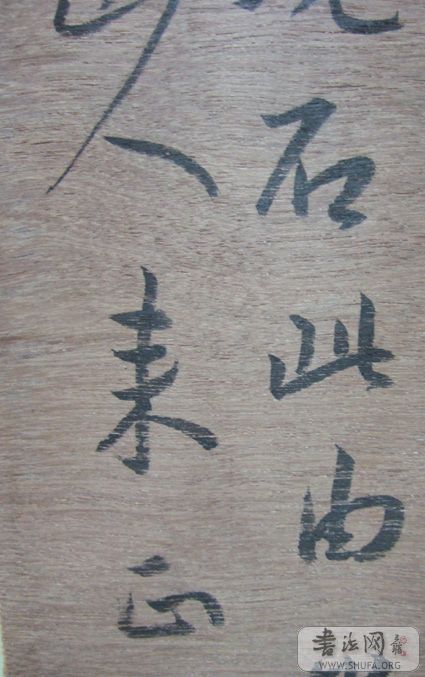 石此由
人耒正
書法网
WWW.SHUFA.ORG